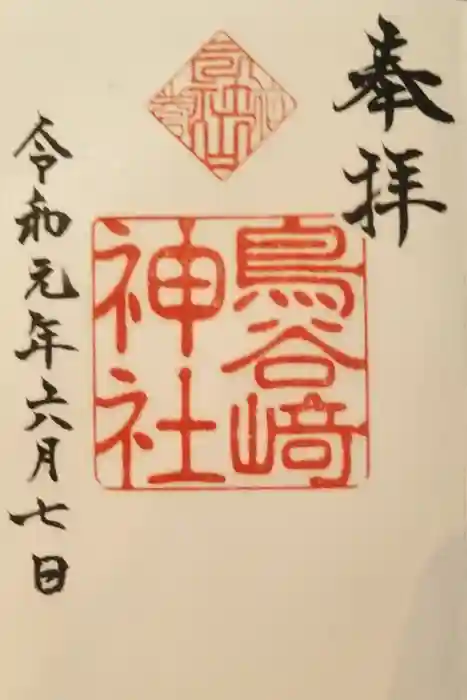 奉拝
鳥谷﨑
神社
令和元年六月七日